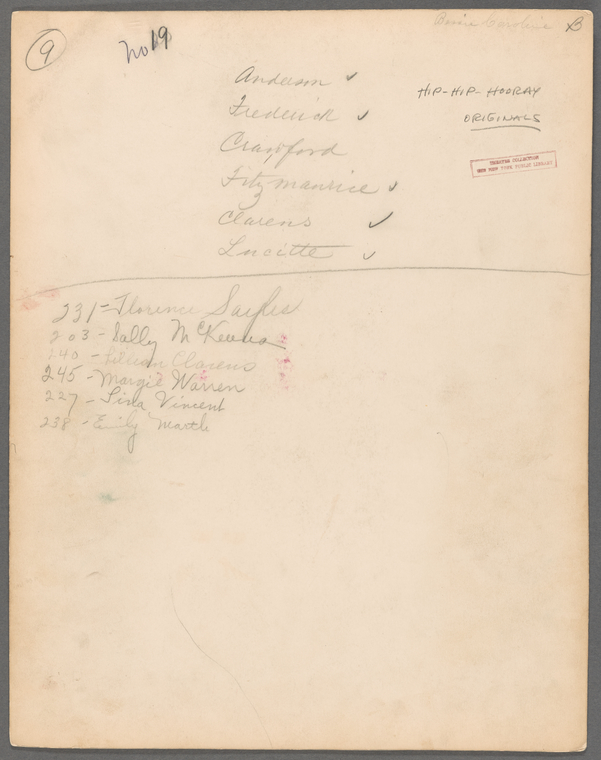 9
No 19
B
Anderson ✓
Frederick ✓
Crawford
Fitzmaurice ✓
Clarens ✓
Lucitte ✓
HIP-HIP-HOORAY
ORIGINALS
THEATRE COLLECTION
NEW YORK PUBLIC LIBRARY
231-Florence Sayles
203-Sally McKenna
240-Lillian Clarens
245-Margie Warren
227-Lina Vincent
238-Emily